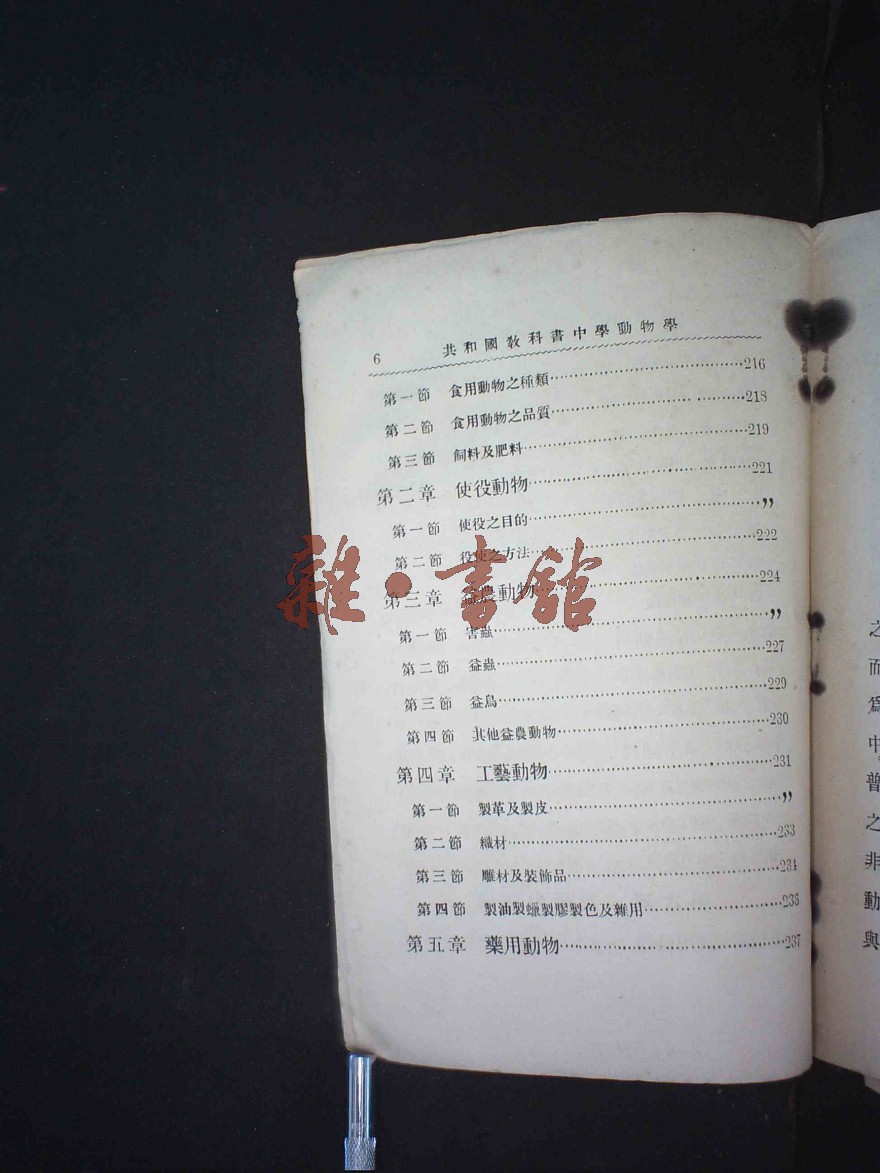 6 共和國教科書中學動物學
第一節 食用動物之種類……216
第二節 食用動物之品質……218
第三節 飼料及肥料……219
第二章 使役動物……221
第一節 使役之目的……”
第二節 役使之方法……222
第三章 益農動物……224
第一節 害蟲……”
第二節 益蟲……227
第三節 益鳥……229
第四節 其他益農動物……230
第四章 工藝動物……231
第一節 製革及製皮……”
第二節 織材……233
第三節 雕材及裝飾品……234
第四節 製油製蠟製膠製色及雜用……236
第五章 藥用動物……237
雜·書館
之
而
爲
中
普
之
非
動
與